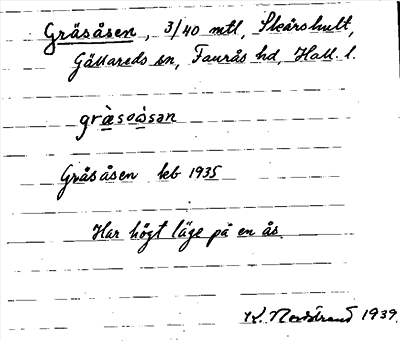 Gräsåsen, 3/40 mtl, Skårshult,
Gällareds sn, Faurås hd, Hall. l.
gràsoåsan
Gräsåsen kb 1935
Har högt läge på en ås.
K. Nordstrand 1939.